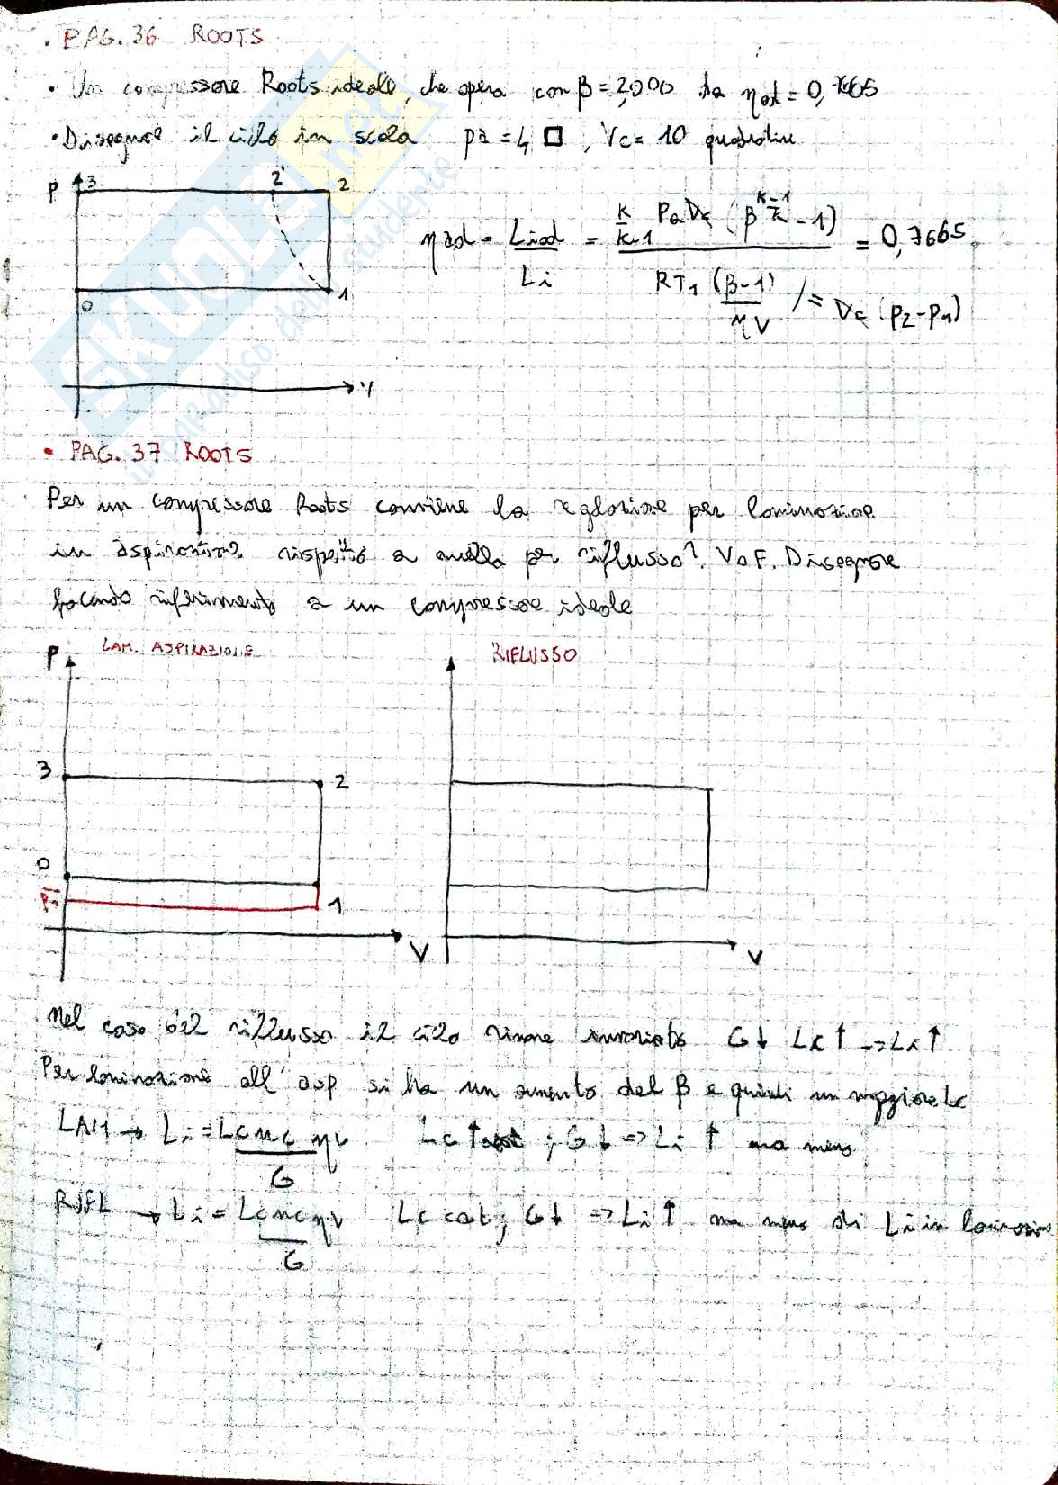 • PAG. 36 ROOTS
• Un compressore Roots ideale, che opera con β = 2,000 ha ηad = 0,7665
• Disegnare il ciclo in scala pa = 4 □ , Vc = 10 quadretti
P 3 2' 2
ηad = Liad / Li = k/k-1 Pa Vc (β^k-1/k - 1) / RT1 (β-1)/ηV = 0,7665
/= Vc (p2-p1)
0 1
V
• PAG. 37 ROOTS
Per un compressore Roots conviene la regolazione per laminazione
in aspirazione rispetto a quella per riflusso? V o F. Disegnare
facendo riferimento a un compressore ideale
P LAM. ASPIRAZIONE RIFLUSSO
3 2
0
P1 1
V V
Nel caso del riflusso il ciclo rimane invariato G↓ Lc↑ → Li↑
Per laminazione all'asp si ha un aumento del β e quindi un maggiore Lc
LAM → Li = Lc nc ηv / G Lc ↑ ; G↓ => Li ↑ ma meno
RIFL → Li = Lc nc ηv / G Lc cost; G↓ => Li↑ ma meno di Li in laminazione